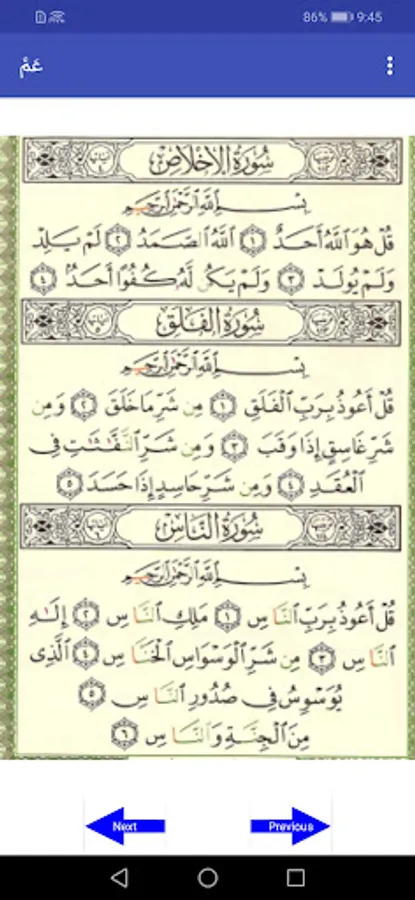 86% 9:45
عَمَّ
سُورَةُ الإِخْلَاصِ
بِسْمِ ٱللَّهِ ٱلرَّحْمَٰنِ ٱلرَّحِيمِ
قُلْ هُوَ ٱللَّهُ أَحَدٌ ١ ٱللَّهُ ٱلصَّمَدُ ٢ لَمْ يَلِدْ
وَلَمْ يُولَدْ ٣ وَلَمْ يَكُن لَّهُۥ كُفُوًا أَحَدٌۢ ٤
سُورَةُ الفَلَقِ
بِسْمِ ٱللَّهِ ٱلرَّحْمَٰنِ ٱلرَّحِيمِ
قُلْ أَعُوذُ بِرَبِّ ٱلْفَلَقِ ١ مِن شَرِّ مَا خَلَقَ ٢ وَمِن
شَرِّ غَاسِقٍ إِذَا وَقَبَ ٣ وَمِن شَرِّ ٱلنَّفَّٰثَٰتِ فِى
ٱلْعُقَدِ ٤ وَمِن شَرِّ حَاسِدٍ إِذَا حَسَدَ ٥
سُورَةُ النَّاسِ
بِسْمِ ٱللَّهِ ٱلرَّحْمَٰنِ ٱلرَّحِيمِ
قُلْ أَعُوذُ بِرَبِّ ٱلنَّاسِ ١ مَلِكِ ٱلنَّاسِ ٢ إِلَٰهِ
ٱلنَّاسِ ٣ مِن شَرِّ ٱلْوَسْوَاسِ ٱلْخَنَّاسِ ٤ ٱلَّذِى
يُوَسْوِسُ فِى صُدُورِ ٱلنَّاسِ ٥
مِنَ ٱلْجِنَّةِ وَٱلنَّاسِ ٦
Next Previous